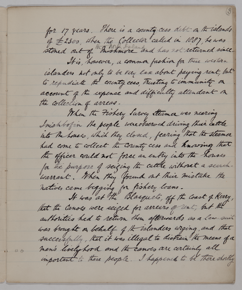 for 17 years. There is a county cess debt on the islands
of £ 2300. When the Collector called in 1887 he was
stoned out of Inishmore and has not returned since.
It is, however, a common fashion for these western
islanders not only to be very lax about paying rent, but
to repudiate the county cess trusting to immunity on
account of the expense and difficulty attendant on
the collection of arrears.
When the Fishery Survey steamer was nearing
the people were observed driving their cattle
into the houses which they closed, fearing that the steamer
had come to collect the county cess and knowing that
the officers could not free an entry into the houses
for the purpose of seizing the cattle without a search
warrant. When they found out their mistake the
natives came begging for fishery loans.
It was at the Blasquets, off the coast of Kerry,
that the canoes were seized for arrears of rent, but the
authorities had to return them afterwards as a law suit
was brought on behalf of the islanders urging, and that
successfully, that it was illegal to distrain the means of a
man's livelihood and the canoes are certainly all
important to these people. I happened to be there shortly